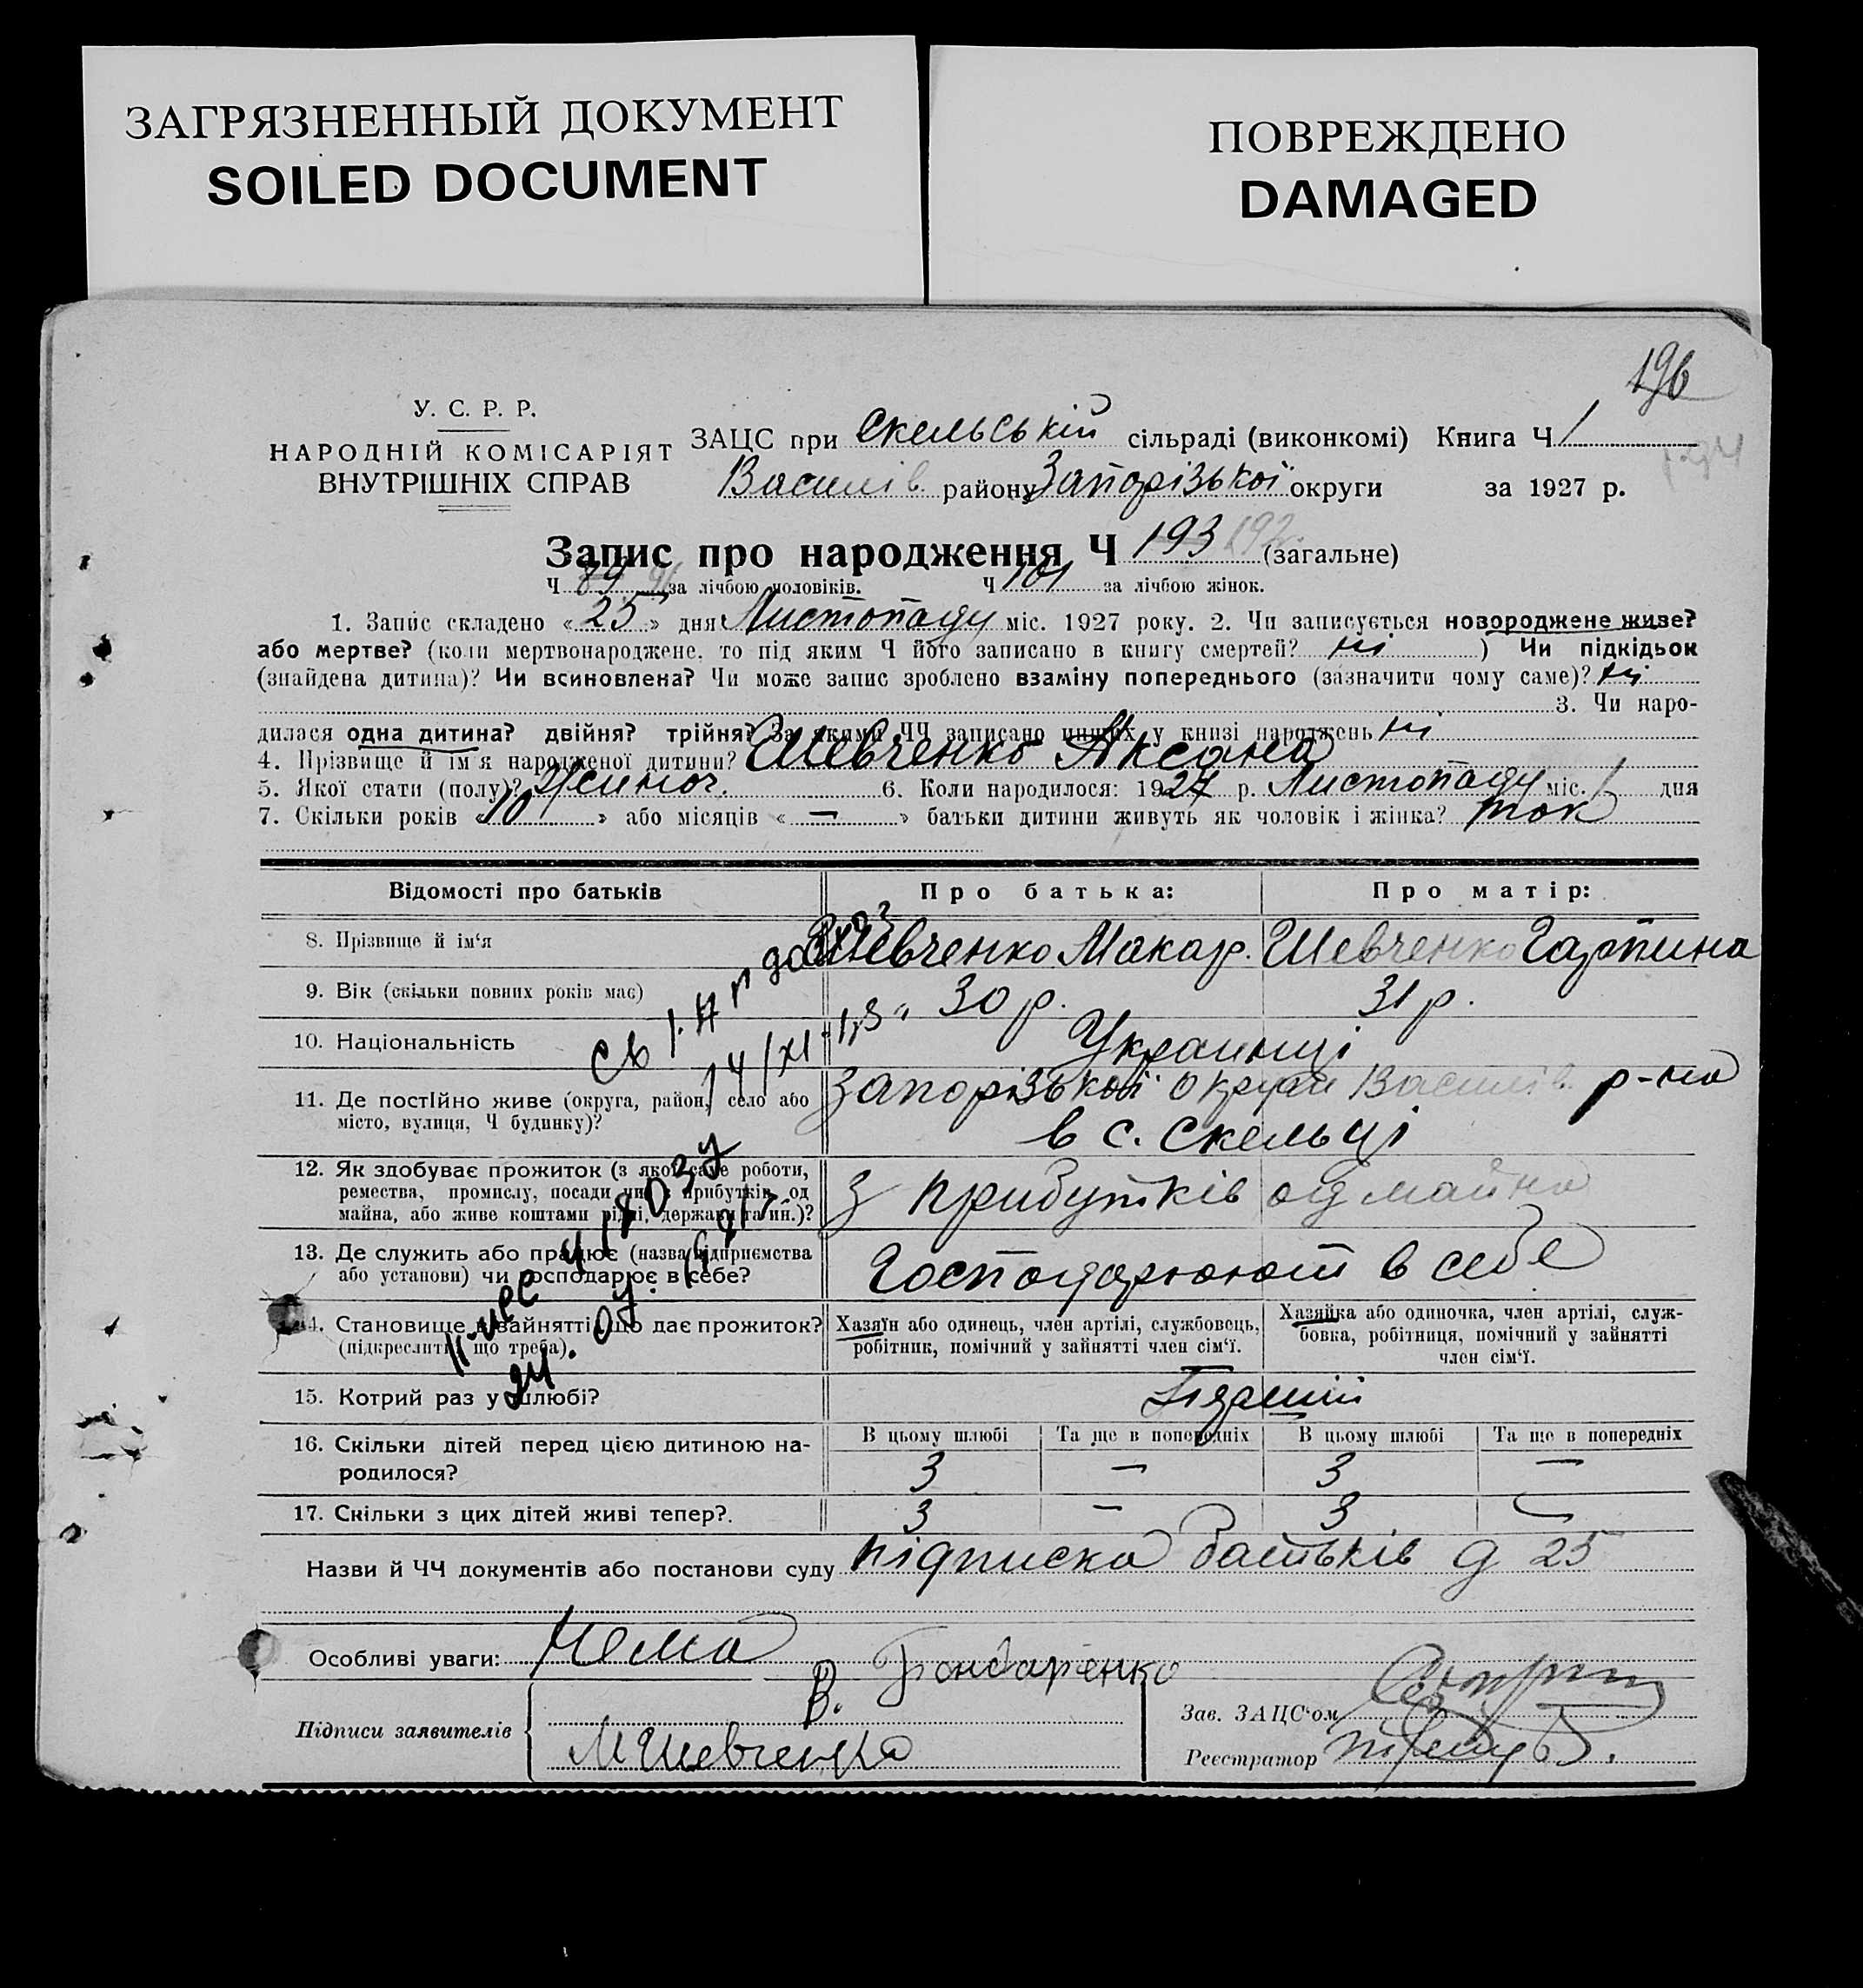 ЗАГРЯЗНЕННЫЙ ДОКУМЕНТ
SOILED DOCUMENT
ПОВРЕЖДЕНО
DAMAGED
196
У. С. Р. Р.
НАРОДНІЙ КОМІСАРІЯТ
ВНУТРІШНІХ СПРАВ
ЗАЦС при Скельській сільраді (виконкомі) Книга Ч 1
Василів. району Запорізької округи за 1927 р.
Запис про народження Ч 193 192. (загальне)
Ч 89 за лічбою чоловіків. Ч 101 за лічбою жінок.
1. Запис складено « 25 » дня Листопаду міс. 1927 року. 2. Чи записується новороджене живе?
або мертве? (коли мертвонароджене, то під яким Ч його записано в книгу смертей? ні ) Чи підкідьок
(знайдена дитина)? Чи всиновлена? Чи може запис зроблено взаміну попереднього (зазначити чому саме)? ні
3. Чи наро-
дилася одна дитина? двійня? трійня? За якими ЧЧ записано инших у книзі народжень ні
4. Прізвище й ім'я народженої дитини? Шевченко Аксана
5. Якої стати (полу)? Жіноч. 6. Коли народилося: 1927 р. Листопаду міс. 1 дня
7. Скільки років « 10 » або місяців « — » батьки дитини живуть як чоловік і жінка? так
Відомості про батьків
Про батька:
Про матір:
8. Прізвище й ім'я Шевченко Макар. Шевченко Гарпина
9. Вік (скільки повних років має) 30 р. 31 р.
10. Національність Украинці
11. Де постійно живе (округа, район, село або Запорізької округи Василів. р-на
місто, вулиця, Ч будинку)? в с. Скельці
12. Як здобуває прожиток (з якої саме роботи,
ремества, промислу, посади чи з прибутків од з прибутків од майна
майна, або живе коштами рідні, держави та ин.)?
13. Де служить або працює (назва підприємства
або установи) чи господарює в себе? Господарюют в себе
14. Становище в зайнятті, що дає прожиток?
(підкреслити, що треба)
Хазяїн або одинець, член артілі, службовець,
робітник, помічний у зайнятті член сім'ї.
Хазяйка або одиночка, член артілі, служ-
бовка, робітниця, помічний у зайнятті
член сім'ї.
15. Котрий раз у шлюбі? Перший
16. Скільки дітей перед цією дитиною на-
родилося?
В цьому шлюбі Та ще в попередніх В цьому шлюбі Та ще в попередніх
3 — 3 —
17. Скільки з цих дітей живі тепер?. 3 - 3 —
Назви й ЧЧ документів або постанови суду підписка батьків 25
Особливі уваги: Нема
В. Бондаренко
Підписи заявителів
М Шевченко
Зав. ЗАЦС'ом
Реєстратор